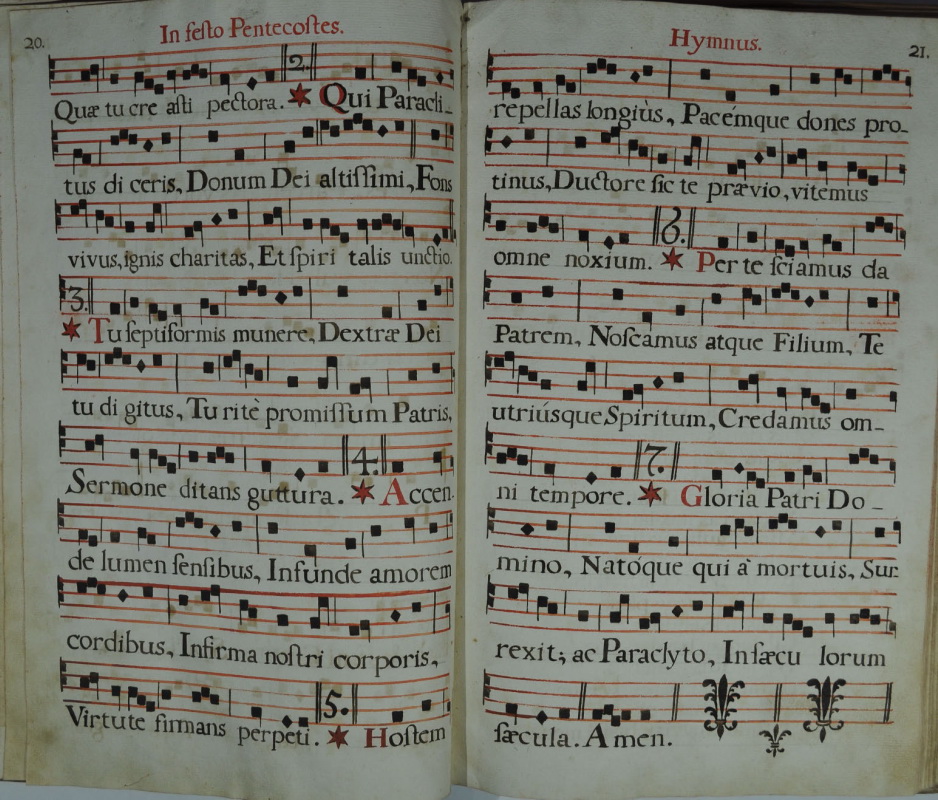 20.
In festo Pentecostes.
2.
Quæ tu cre asti pectora. ✶ Qui Paracli_
tus di ceris, Donum Dei altissimi, Fons
vivus, ignis charitas, Et spiri talis unctio.
3.
✶ Tu septiformis munere, Dextræ Dei
tu di gitus, Tu ritè promissum Patris,
4.
Sermone ditans guttura. ✶ Accen-
de lumen sensibus, Infunde amorem
cordibus, Infirma nostri corporis,
5.
Virtute firmans perpeti. ✶ Hostem
Hymnus.
21.
repellas longiùs, Pacémque dones pro_
tinus, Ductore sic te prævio, vitemus
6.
omne noxium. ✶ Per te sciamus da
Patrem, Noscamus atque Filium, Te
utriúsque Spiritum, Credamus om_
7.
ni tempore. ✶ Gloria Patri Do_
mino, Natóque qui à mortuis, Sur-
rexit; ac Paraclyto, In sæcu lorum
sæcula. Amen.